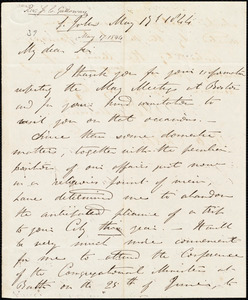 Rev. J. C. Galloway
St. John May 17th 1844
39
May 17, 1844
My dear Sir
I thank you for your information
respecting the May Meetings at Boston
and for your kind invitation to
visit you on that occasion.
Since then some domestic
matters, together with the peculiar
position of our affairs just now
in a religious point of view,
have determined me to abandon
the anticipated pleasure of a trip
to your City this year. — It will
be very much more convenient
for me to attend the Conference
of the Congregational Ministers at
Bath on the 25th of June, to